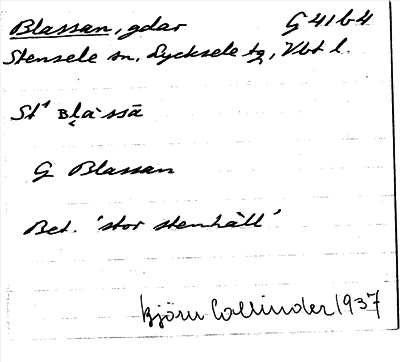 Blassan, gdar G 41 b 4
Stensele sn, Lycksele tg, Vbt l.
St¹ Bḷà·ssā
G Blassan
Bet. 'stor stenhäll'
Björn Collinder 1937